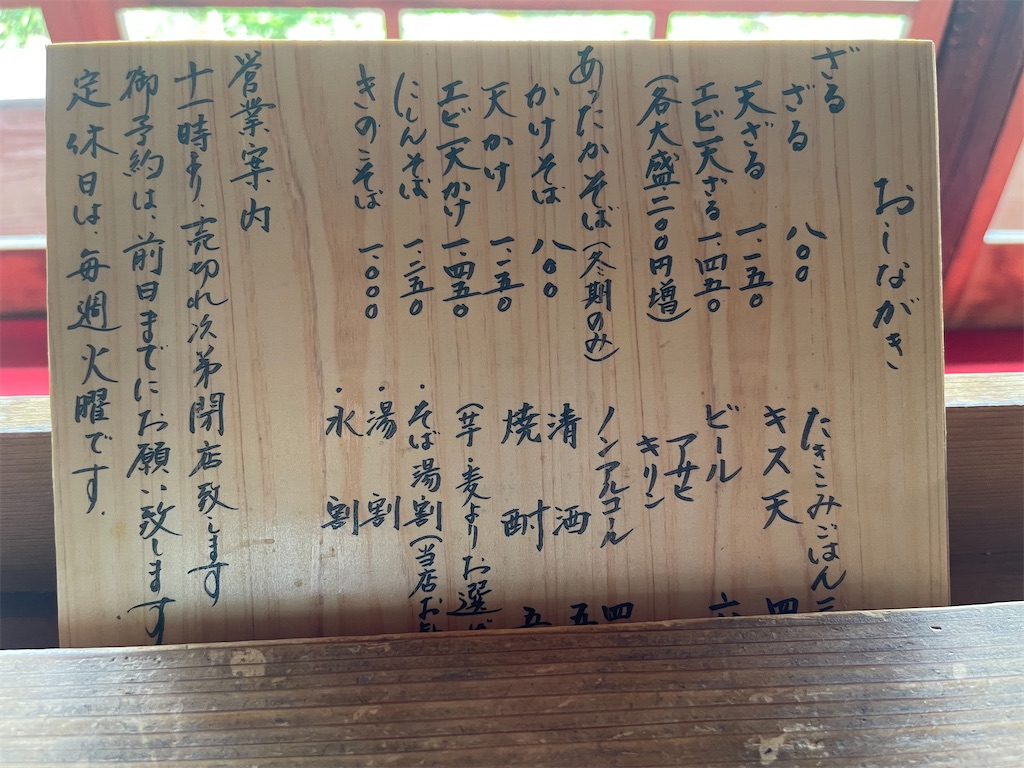 おしながき
ざる
ざる 八〇〇
天ざる 一.一五〇
エビ天ざる 一.四五〇
(各大盛.二〇〇円増)
あったかそば(冬期のみ)
かけそば 八〇〇
天かけ 一.一五〇
エビ天かけ 一.四五〇
にしんそば 一.二五〇
きのこそば 一.〇〇〇
たきこみごはん 三
キス天 四
ビール 六
アサヒ
キリン
ノンアルコール 四
清酒 五
焼酎 五
(芋・麦よりお選び
・そば湯割(当店お
・湯割
・水割
営業案内
十一時より、売切れ次第閉店致します
御予約は、前日までにお願い致します
定休日は、毎週火曜です.